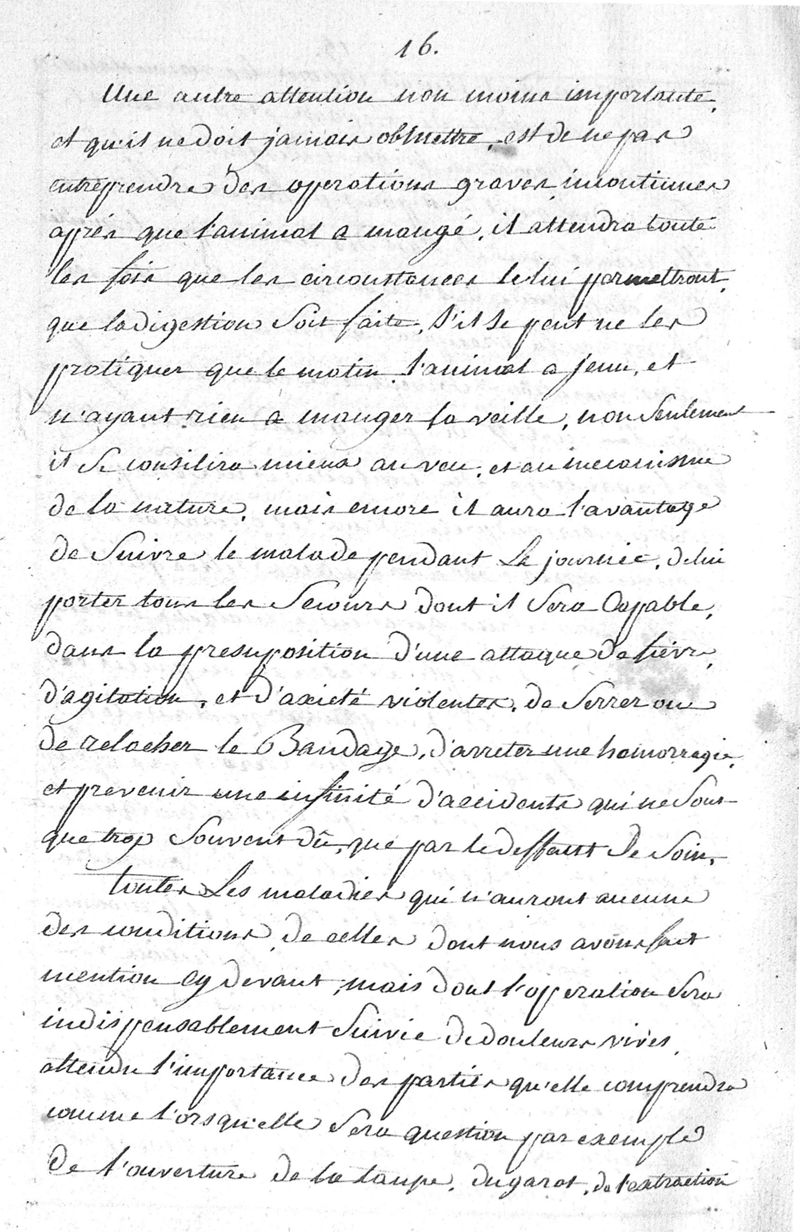 16.
Une autre attention non moins importante,
et qu'il ne doit jamais obmettre, est de ne pas
entreprendre des operations graves, incontinues
après que l'animal a mangé, il attendra toute
les fois que les circonstances le lui permettront,
que la digestion soit faite, s'il se peut ne les
pratiquer que le matin, l'animal a jeun, et
n'ayant rien a manger la veille, non seulement
il se consilira mieux au veu, et au mecanisme
de la nature, mais encore il aura l'avantage
de suivre le malade pendant la journée, de lui
porter tous les secours dont il sera capable,
dans la presuposition d'une attaque de fièvre,
d'agitation, et d'axieté violentes, de serrer ou
de relacher le Bandage, d'arreter une hemorragie,
et prevenir une infinité d'accidents qui ne sont
que trop souvent dû, que par le deffaut de soin,
toutes les maladies qui n'auront aucune
des conditions de celles dont nous avons fait
mention cy devant, mais dont l'operation sera
indispensablement suivie de douleurs vives,
attendu l'importance des parties qu'elle comprendra
comme l'orsqu'elle sera question par exemple
de l'ouverture de la taupe, du garot, de l'extraction